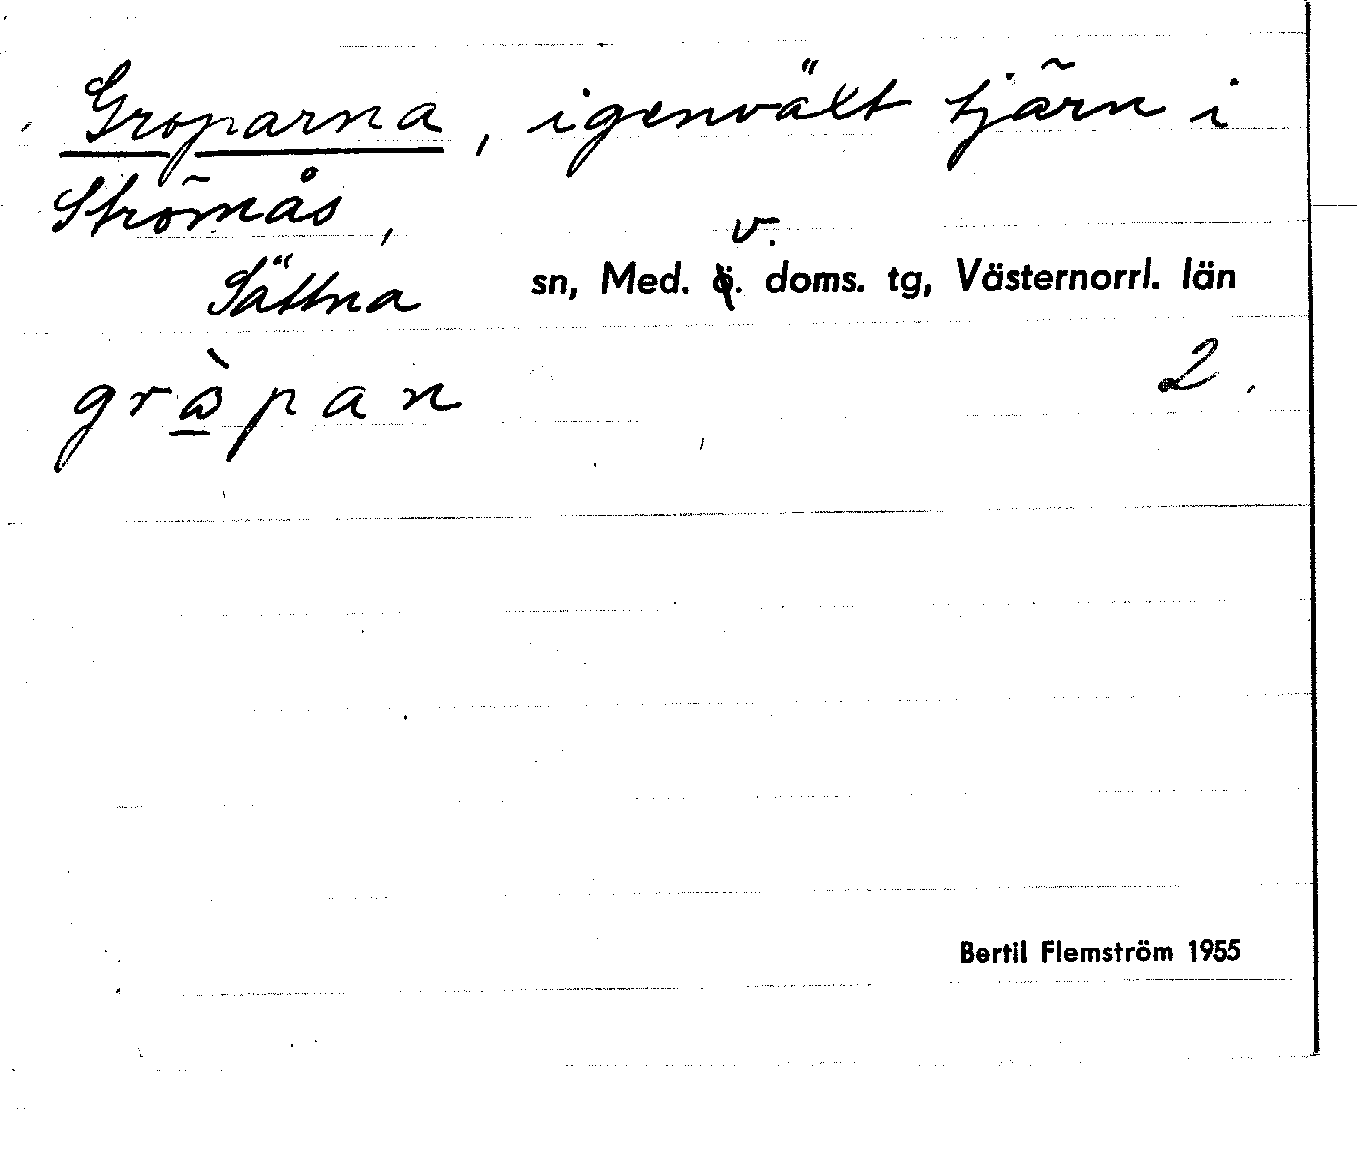 Groparna, igenväxt tjärn i
Strömås,
Sättna sn, Med. v. doms. tg, Västernorrl. län
gr&#x0075;̀pan 2.
Bertil Flemström 1955